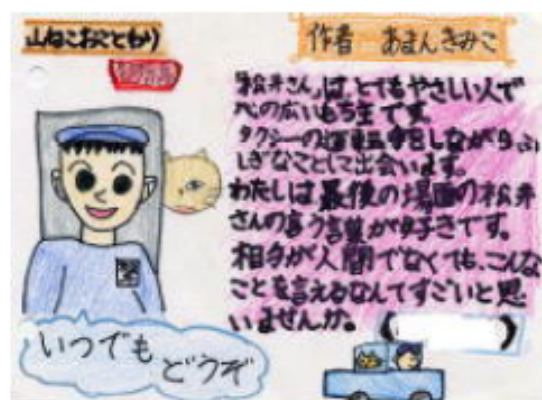 山ねこおことわり
作者 あまんきみこ
「松井さん」は、とてもやさしい人で
心の広いもち主です。
タクシーの運転手をしながらふ
しぎなことに出会います。
わたしは最後の場面の松井
さんの言う言葉が好きです。
相手が人間でなくても、こんな
ことを言えるなんてすごいと思
いませんか。
いつでも どうぞ